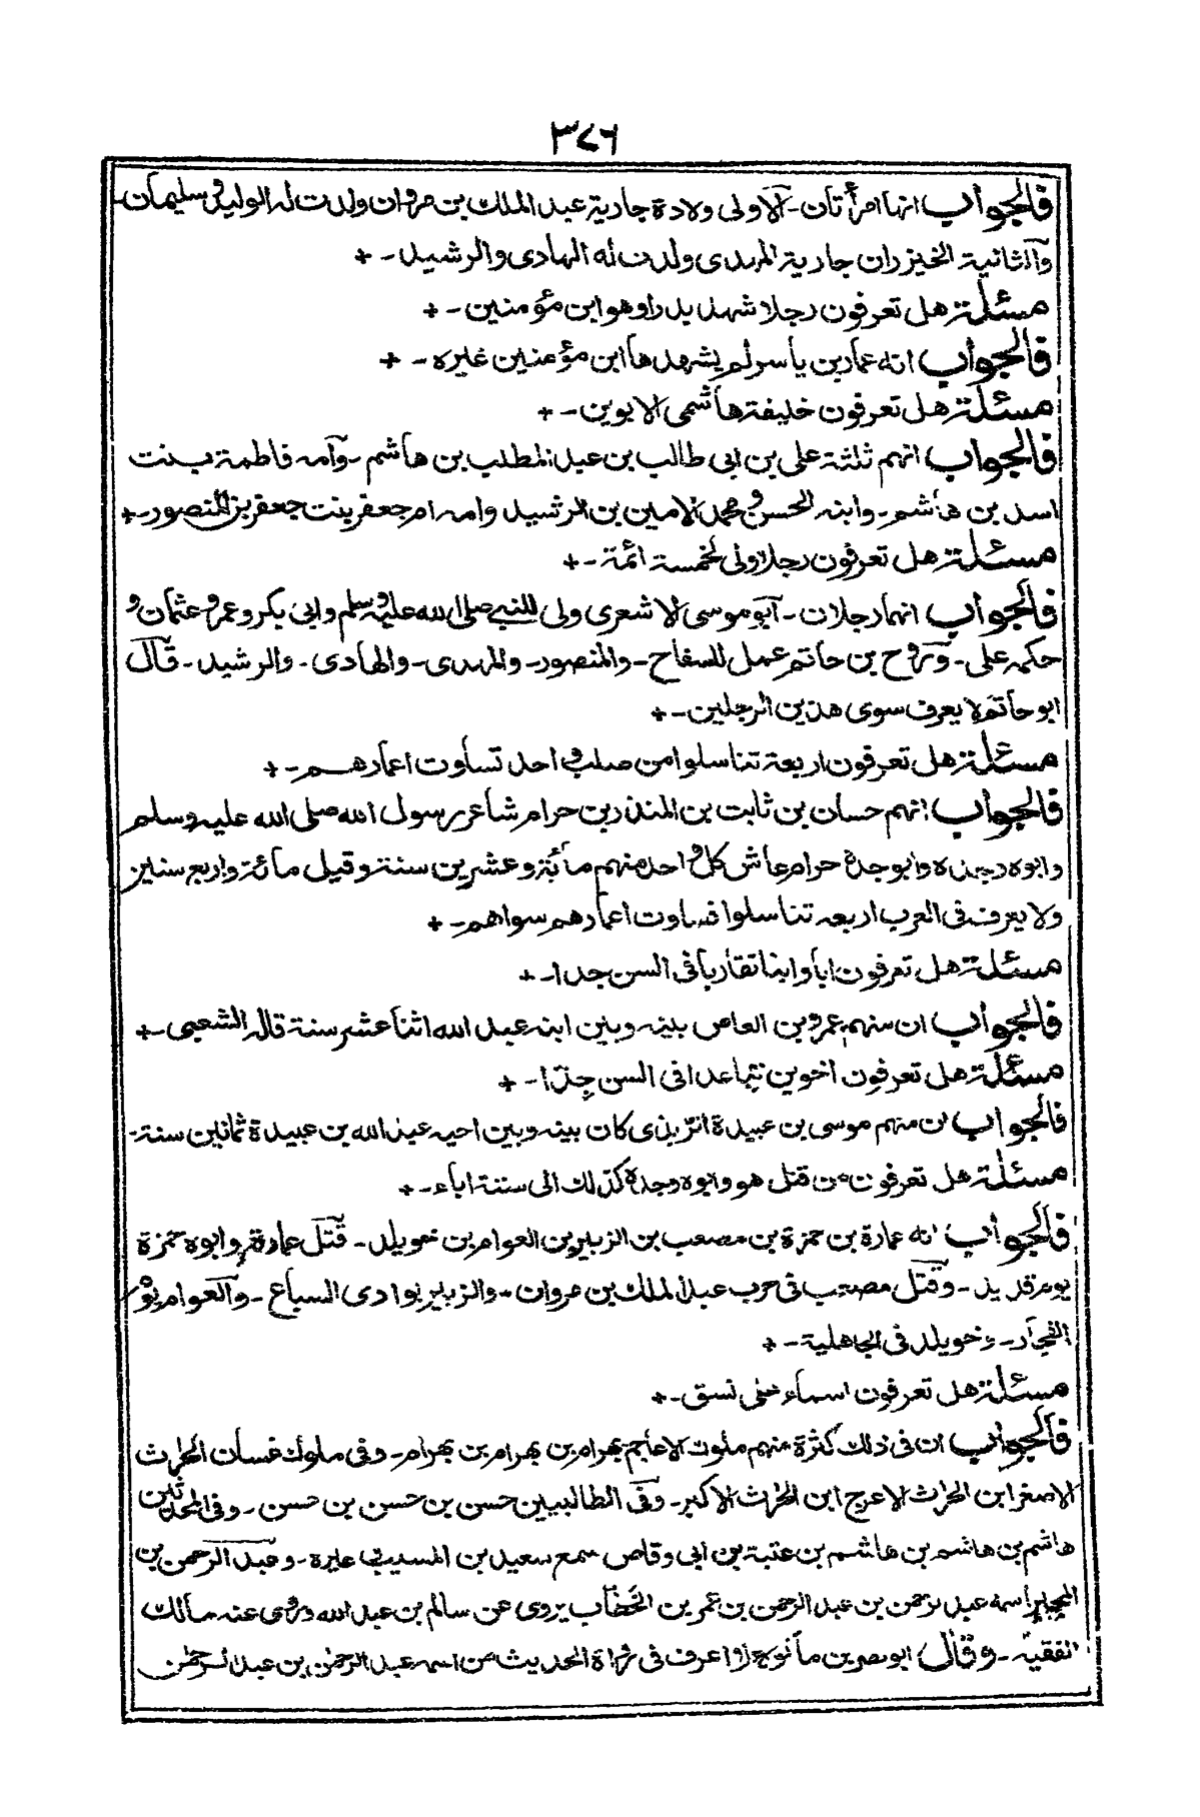 ٣٧٦
فالجواب انها امرأتان ـ الاولى ولادة جارية عبد الملك بن مروان ولدت له الوليد و سليمان ـ
والثانية الخيزران جارية المهدى ولدت له الهادى والرشيد ـ +
مسئلة هل تعرفون رجلا شهد بدرا وهو ابن مؤمنين ـ +
فالجواب انه عمار بن ياسر لم يشهدها ابن مؤمنين غيره ـ +
مسئلة هل تعرفون خليفة هاشمى الابوين ـ +
فالجواب انهم ثلثة على بن ابى طالب بن عبد المطلب بن هاشم ـ وامه فاطمة بنت
اسد بن هاشم ـ وابنه الحسن و محمد الامين بن الرشيد وامه ام جعفر بنت جعفر بن المنصور ـ +
مسئلة هل تعرفون رجلا ولى لخمسة ائمة ـ +
فالجواب انهما رجلان ـ ابو موسى الاشعرى ولى للنبي صلى الله عليه وسلم وابى بكر وعمر و عثمان و
حكمه على ـ وروح بن حاتم عمل للسفاح ـ والمنصور ـ والمهدى ـ والهادى ـ والرشيد ـ قال
ابو حاتم ولا يعرف سوى هذين الرجلين ـ +
مسئلة هل تعرفون اربعة تناسلوا من صلب واحد تساوت اعمارهم ـ +
فالجواب انهم حسان بن ثابت بن المنذر بن حرام شاعر رسول الله صلى الله عليه وسلم
وابوه وجده وابو جده حرام عاش كل واحد منهم مائة وعشرين سنة وقيل مائة واربع سنين
ولا يعرف فى العرب اربعة تناسلوا تساوت اعمارهم سواهم ـ +
مسئلة هل تعرفون ابا وابنا تقاربا فى السن جدا ـ +
فالجواب ان منهم عمرو بن العاص بينه وبين ابنه عبد الله اثنا عشر سنة قاله الشعبى ـ +
مسئلة هل تعرفون اخوين تباعدا فى السن جدّا ـ +
فالجواب ان منهم موسى بن عبيدة الربذى كان بينه وبين اخيه عبد الله بن عبيدة ثمانين سنة ـ
مسئلة هل تعرفون من قتل هو وابوه وجده كذلك الى ستة اباء ـ +
فالجواب انه عمارة بن حمزة بن مصعب بن الزبير بن العوام بن خويلد ـ قتل عمارة و ابوه حمزة
يوم قديد ـ وقتل مصعب فى حرب عبد الملك بن مروان ـ والزبير بوادى السباع ـ والعوام يوم
الفجار ـ وخويلد فى الجاهلية ـ +
مسئلة هل تعرفون اسماء على نسق ـ +
فالجواب ان فى ذلك كثرة منهم ملوك الاعاجم بهرام بن بهرام بن بهرام ـ وفى ملوك غسان الحارث
الاصغر ابن الحارث الاعرج ابن الحارث الاكبر ـ وفى الطالبيين حسن بن حسن بن حسن ـ وفى المحدثين
هاشم بن هاشم بن هاشم بن عتبة بن ابى وقاص سمع سعيد بن المسيب غيره ـ وعبد الرحمن بن
المجبر اسمه عبد الرحمن بن عبد الرحمن بن عمر بن الخطاب يروى عن سالم بن عبد الله وروى عنه مالك
الفقيه ـ وقال ابو نصر بن ماكولا اعرف فى رواة الحديث من اسمه عبد الرحمن بن عبد الرحمن